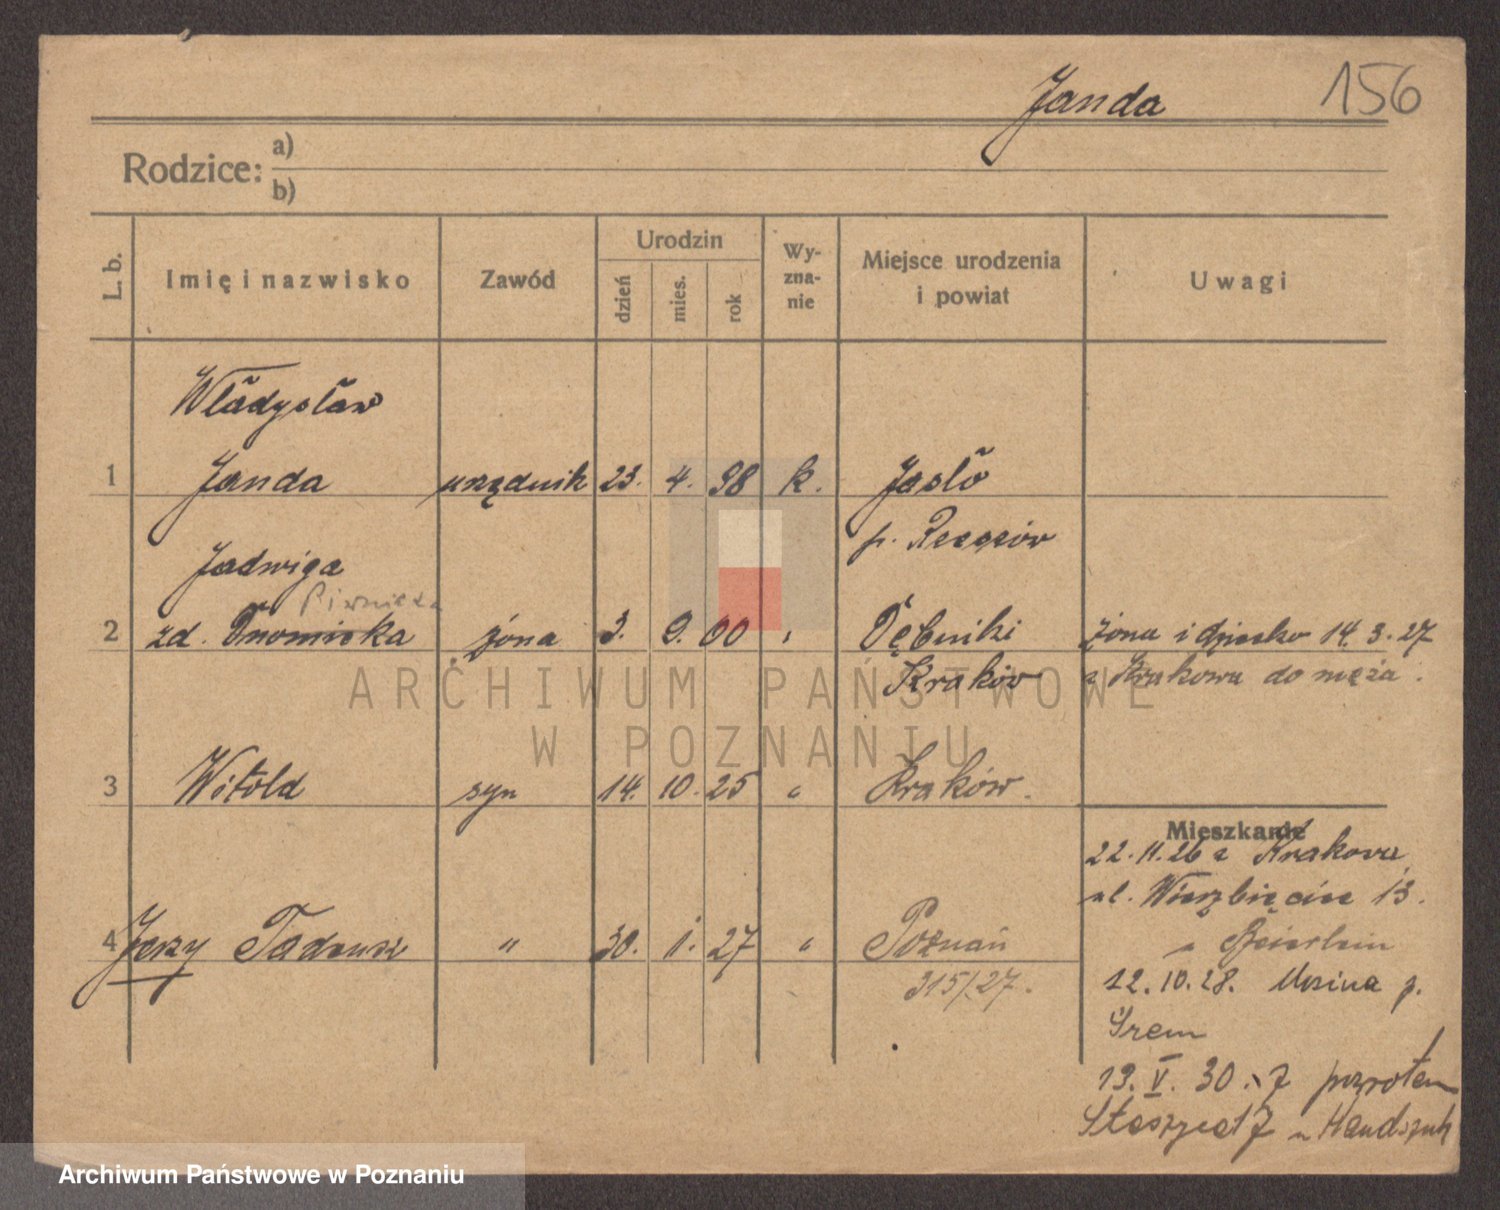 Janda 156
Rodzice: a)
b)
L. b. Imię i nazwisko Zawód Urodzin dzień mies. rok Wy-zna-nie Miejsce urodzenia i powiat Uwagi
Władysław
1 Janda urzędnik 23. 4. 98 k. Jasło
p. Rzeszów
Jadwiga
2 zd. żona 3. 9. 00 " Dębniki żona i dziecko 14.3.27
Kraków z Krakowa do męża.
ARCHIWUM PAŃSTWOWE
W POZNANIU
3 Witold syn 14. 10. 25 " Kraków.
Mieszkanie
22.11.26 z Krakowa
ul. Wierzbięcice 13.
4 Jerzy Tadeusz " 30. 1. 27 " Poznań
315/27.
12.10.28. Mosina p.
Śrem
13. V. 30. z powrotem
Staszyca 17 u
Archiwum Państwowe w Poznaniu